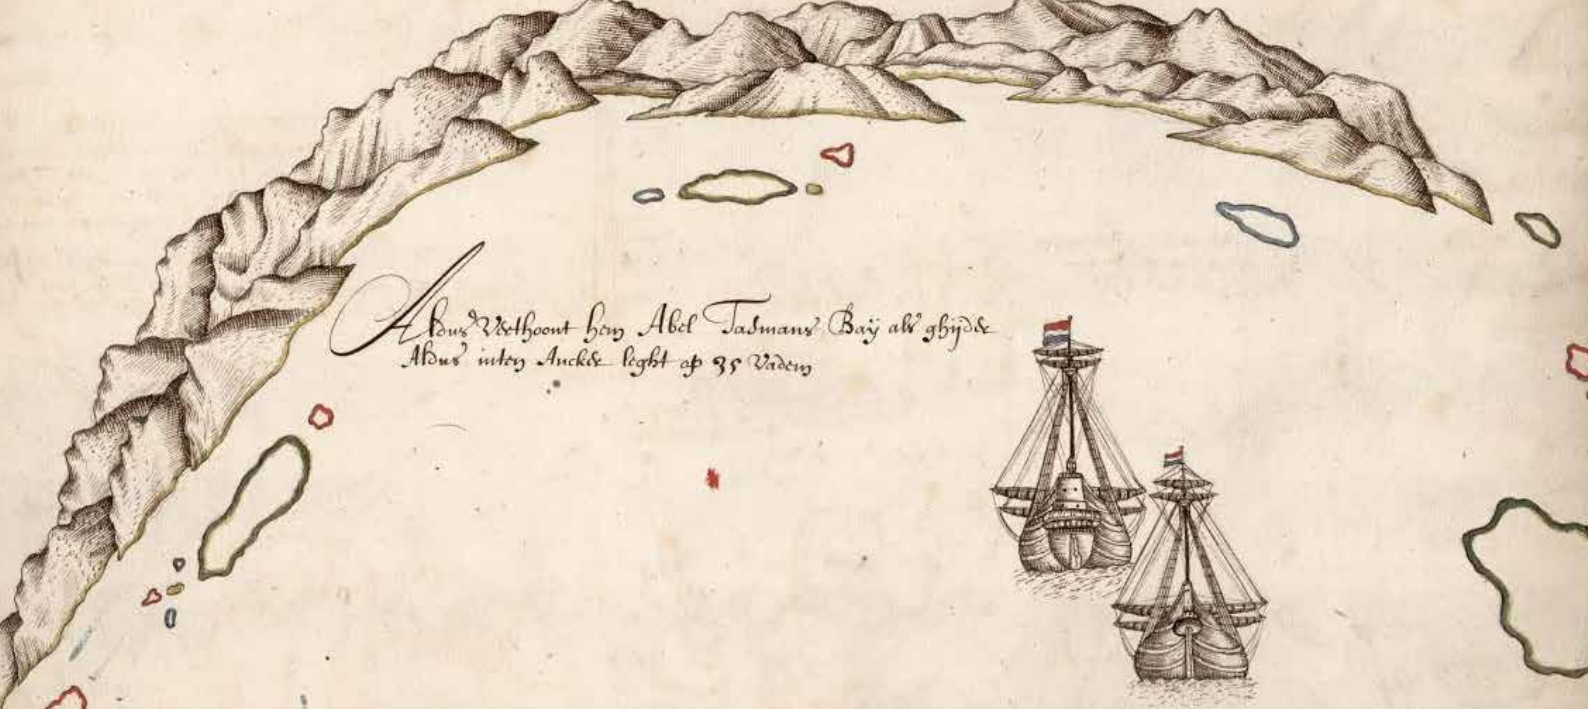 Aldus Verthoont hem Abel Tasmans Baÿ als ghÿder
Aldus inten Ancker leght op 35 Vadem